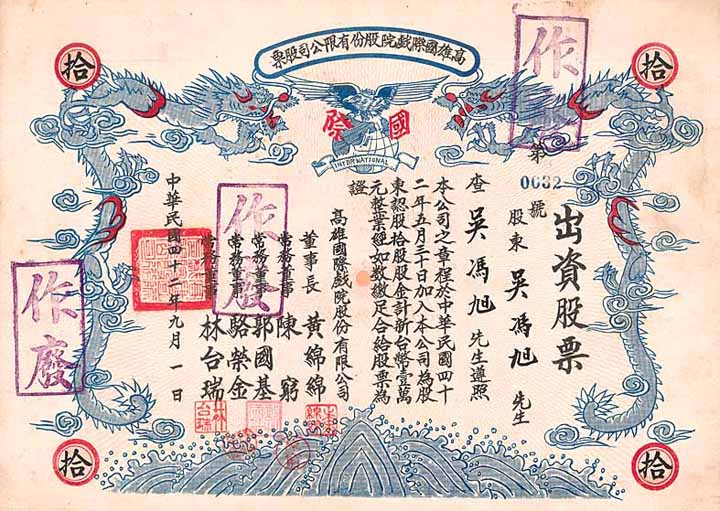 高雄國際戲院股份有限公司股票
拾
拾
國際
INTERNATIONAL
作廢
第0032號
出資股票
股東 吳馮旭 先生
查 吳馮旭 先生遵照
本公司之章程於中華民國四十
二年五月三十日加入本公司為股
東認股拾股股金計新台幣壹萬
元整業經如數繳足合給股票為
證
高雄國際戲院股份有限公司
董事長 黃綿綿
常務董事 陳窮
常務董事 郭國基
常務董事 駱榮金
常務董事 林台瑞
中華民國四十二年九月一日
作廢
作廢
林台瑞
拾
拾